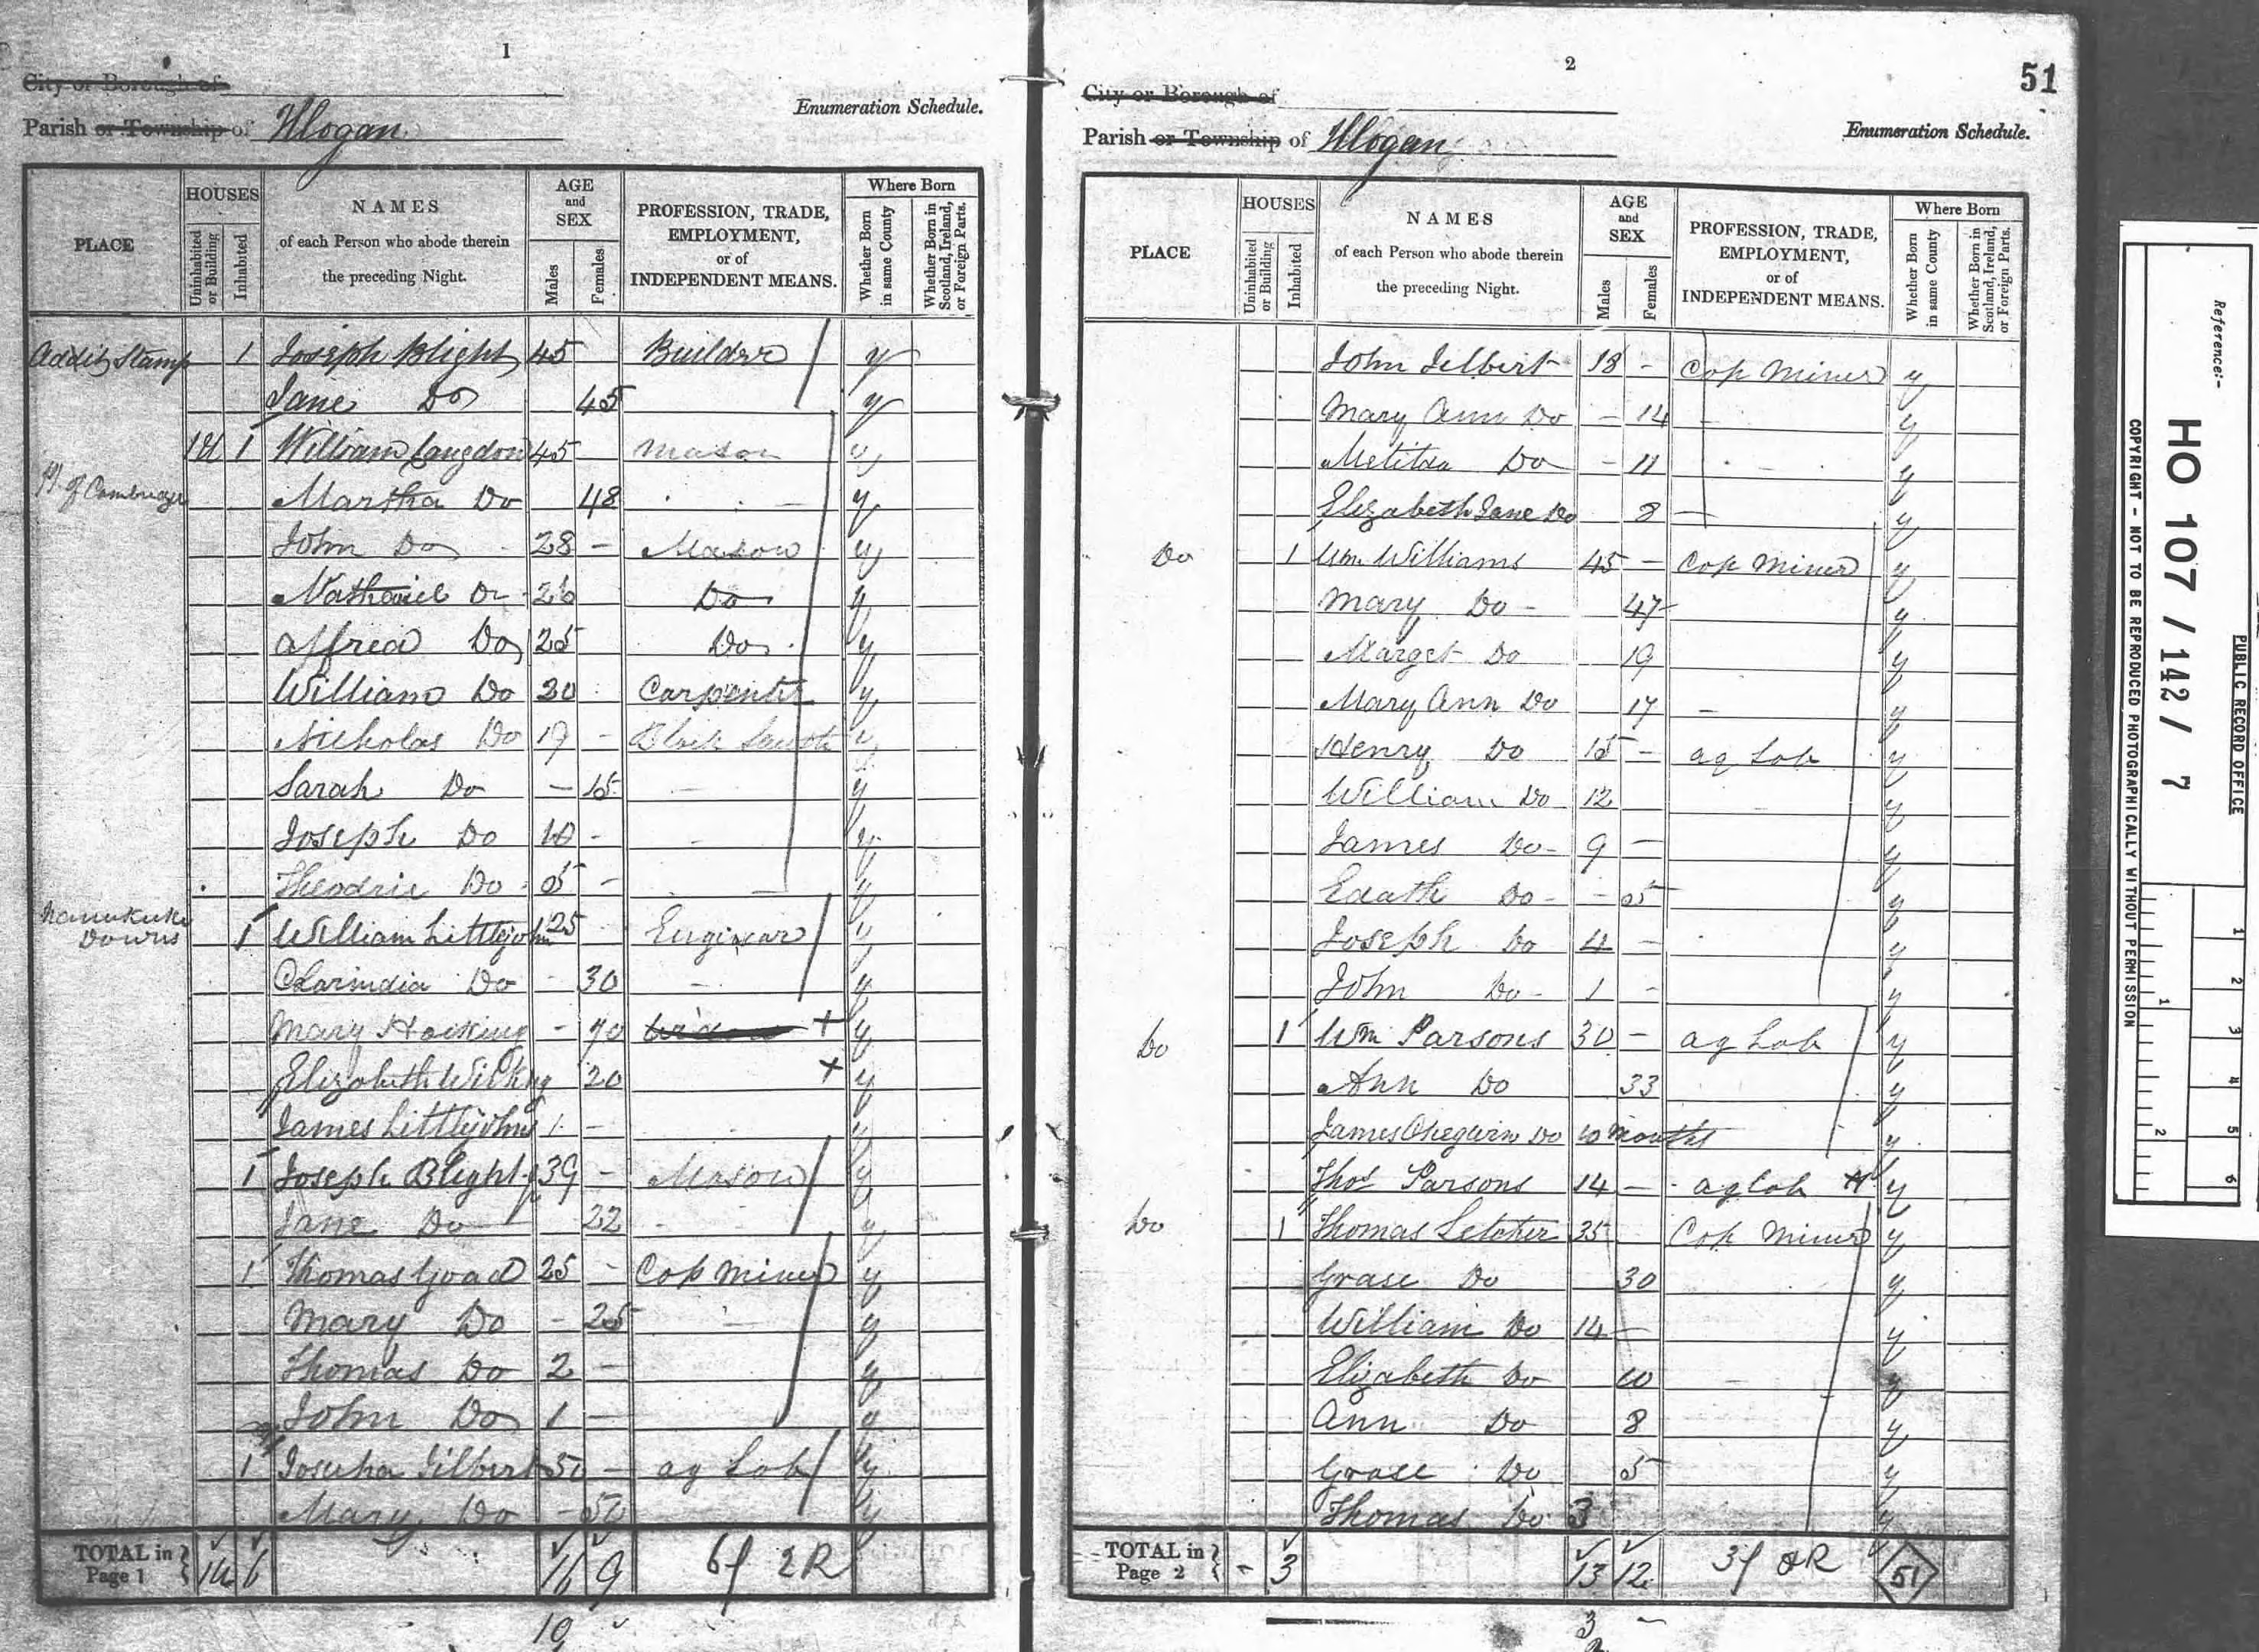 1
City or Borough of
Enumeration Schedule.
Parish or Township of Illogan
PLACE
HOUSES
Uninhabited or Building
Inhabited
NAMES
of each Person who abode therein
the preceding Night.
AGE and SEX
Males
Females
PROFESSION, TRADE,
EMPLOYMENT,
or of
INDEPENDENT MEANS.
Where Born
Whether Born in same County
Whether Born in Scotland, Ireland, or Foreign Parts.
Addit Stamp 1 Joseph Blight 45 Builder y
Jane Do 45 y
1U 1 William Langdon 45 Mason y
Martha Do 48 y
John Do 28 - Mason y
Nathaniel Do 26 Do y
Alfred Do 25 Do y
William Do 20 Carpenter y
Nicholas Do 19 - Black Smith y
Sarah Do - 15 - y
Joseph Do 10 - - y
Do 5 - - y
Downs 1 William Littlejohn 25 Enginear y
Clarindia Do - 30 - y
Mary Hocking - 70 + y
Elizabeth 20 + y
James Littlejohns 1 - y
1 Joseph Blight 39 - Mason y
Jane Do 22 - y
1 Thomas Goad 25 - Cop Miner y
Mary Do - 25 - y
Thomas Do 2 - y
John Do 1 - y
1 Gilbert 50 - ag Lab y
Mary Do - 50 y
TOTAL in Page 1 1U 6 16 9 6f 2R
10
2
51
City or Borough of
Enumeration Schedule.
Parish or Township of Illogan
PLACE
HOUSES
Uninhabited or Building
Inhabited
NAMES
of each Person who abode therein
the preceding Night.
AGE and SEX
Males
Females
PROFESSION, TRADE,
EMPLOYMENT,
or of
INDEPENDENT MEANS.
Where Born
Whether Born in same County
Whether Born in Scotland, Ireland, or Foreign Parts.
John Jilbert 18 - Cop Miner y
Mary Ann Do - 14 - y
Do - 11 - y
Elizabeth Jane Do 8 - y
Do 1 Wm. Williams 45 - Cop Miner y
Mary Do - 47 y
Marget Do 19 y
Mary Ann Do 17 - y
Henry Do 15 - ag Lab y
William Do 12 y
James Do - 9 - y
Do - - 5 y
Joseph Do 4 - y
John Do - 1 - y
Do 1 Wm Parsons 30 - ag Lab y
Ann Do 33 y
James Chegwin Do 10 months y
Thos Parsons 14 - ag Lab y
Do 1 Thomas Letcher 35 Cop Miner y
Grase Do 30 y
William Do 14 - y
Elizabeth Do 10 y
Ann Do 8 y
Grase Do 5 y
Thomas Do 3 y
TOTAL in Page 2 - 3 13 12 3f 2R 51
3
PUBLIC RECORD OFFICE
Reference:-
HO 107 / 142 / 7
COPYRIGHT - NOT TO BE REPRODUCED PHOTOGRAPHICALLY WITHOUT PERMISSION
1 2 3 4 5 6
1 2